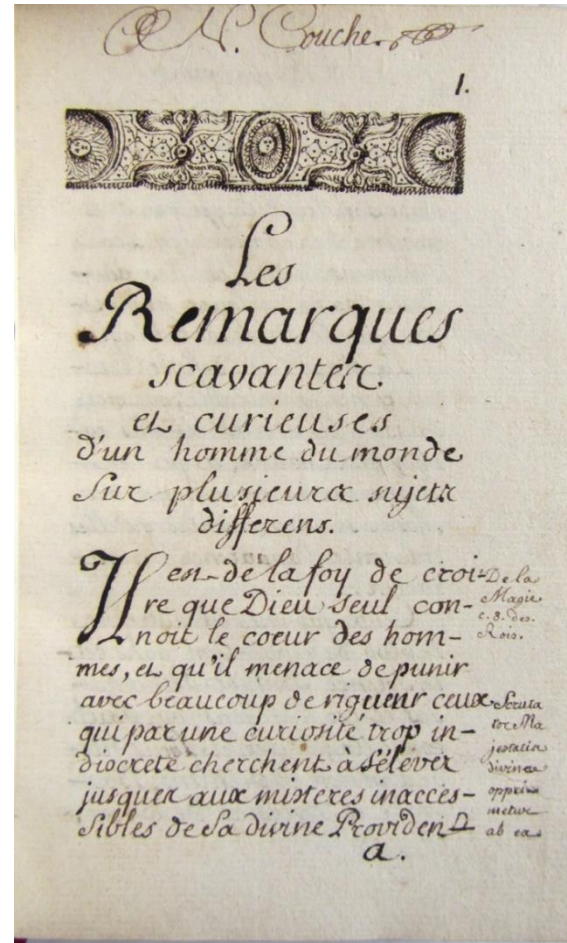 N. Couche.
1.
Les
Remarques
scavantes
et curieuses
d'un homme du monde
Sur plusieurs sujets
differens.
Il est de la foy de croi-
re que Dieu seul con-
noit le coeur des hom-
mes, et qu'il menace de punir
avec beaucoup de rigueur ceux
qui par une curiosité trop in-
discrete cherchent à S'élever
jusques aux misteres inacces-
sibles de Sa divine Providen
a.
De la
Magie
c. 8. des.
Rois.
Scruta
tor Ma
jestatis
divinæ
opprim
metur
ab ea